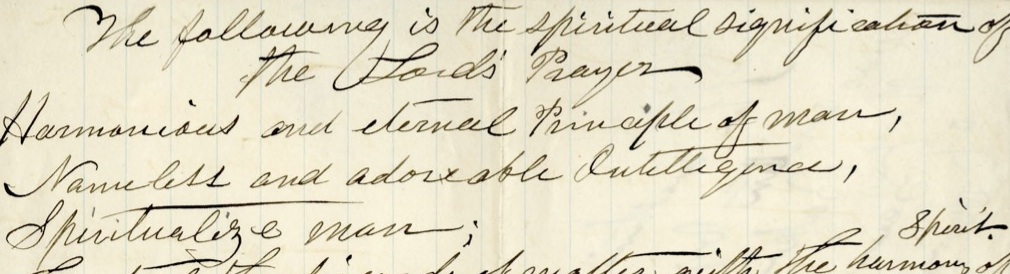 The following is the spiritual signification of
the Lord's Prayer
Harmonious and eternal Principle of man,
Nameless and adoreable Intelligence,
Spiritualize man;
Spirit.
of matter with the harmony of